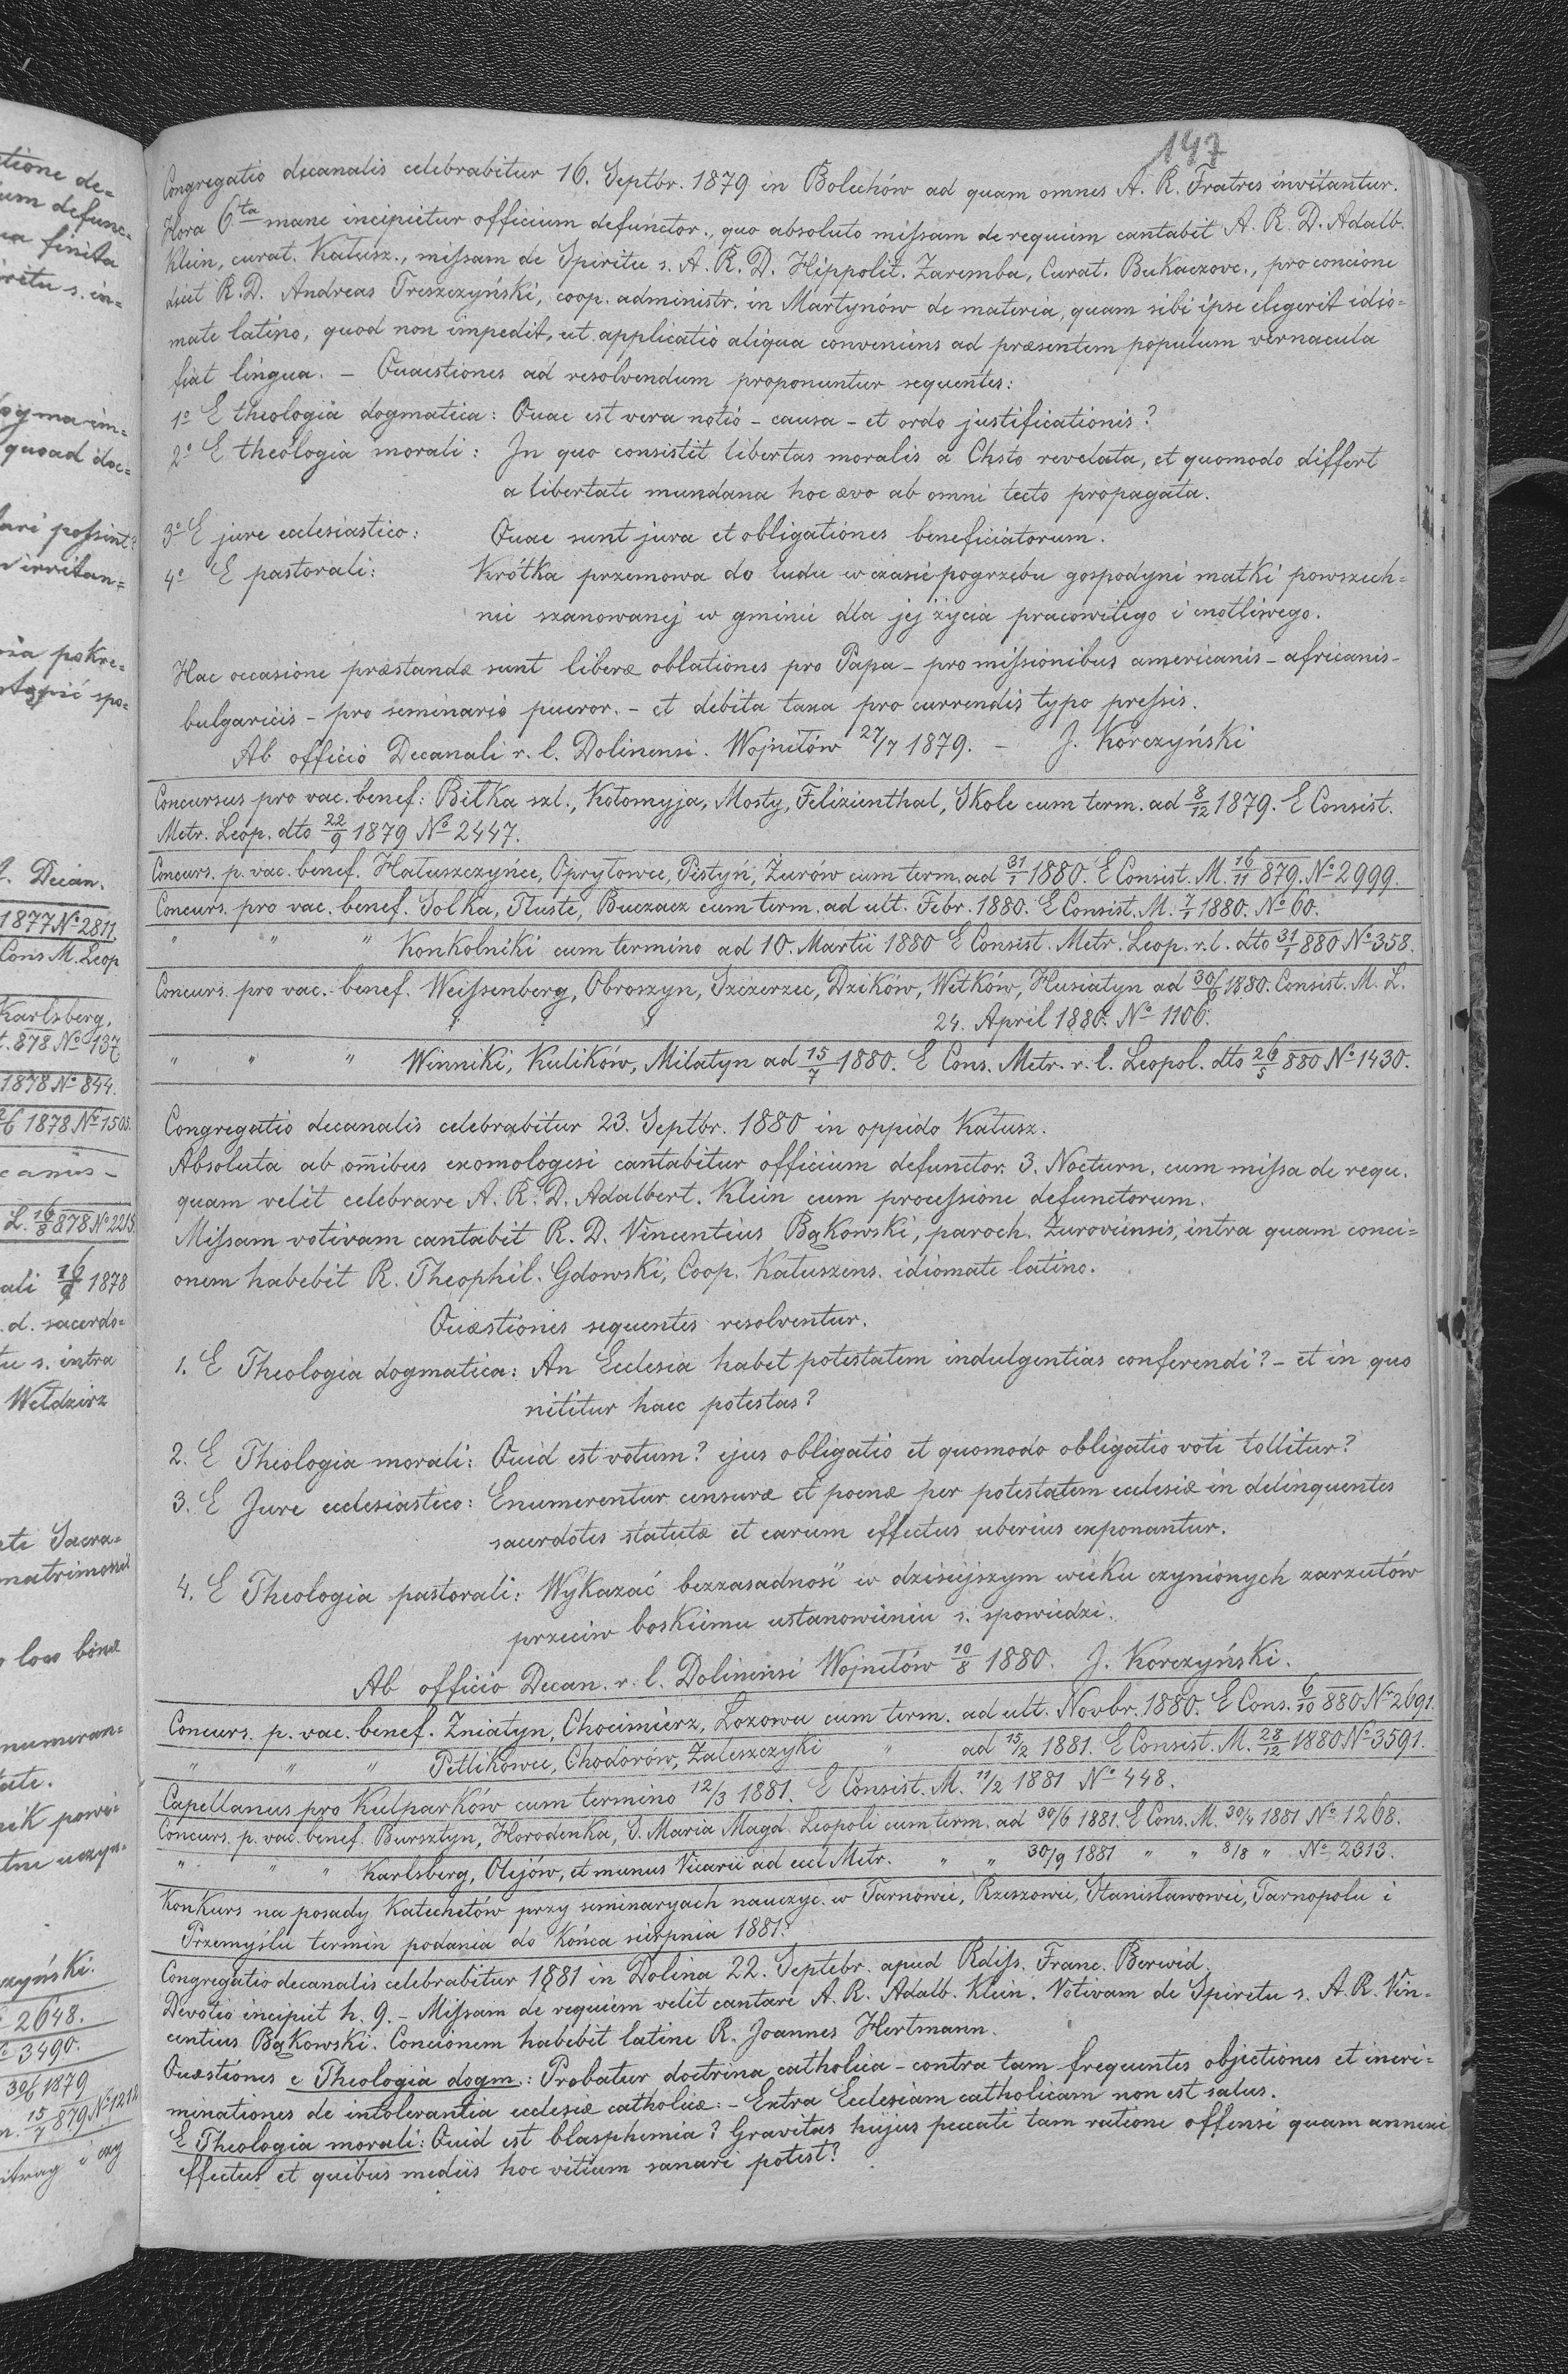 147
Congregatio decanalis celebrabitur 16. Septbr. 1879 in Bolechów ad quam omnes A. R. Fratres invitantur.
Hora 6ta mane incipietur officium defunctor., quo absoluto missam de requiem cantabit A. R. D. Adalb.
Klein, curat. Kałusz., missam de Spiritu s. A. R. D. Hippolit. Zaremba, Curat. Bukaczov., pro concione
dicet R. D. Andreas Treszczyński, coop. administr. in Martynów de materia, quam sibi ipse elegerit idio=
mate latino, quod non impedit, ut applicatio aliqua conveniens ad præsentem populum vernacula
fiat lingua. – Quaestiones ad resolvendum proponuntur sequentes:
1o E theologia dogmatica: Quae est vera notio – causa – et ordo justificationis?
2o E theologia morali: In quo consistit libertas moralis a Chsto revelata, et quomodo differt
a libertate mundana hoc ævo ab omni tecto propagata.
3o E jure ecclesiastico: Quae sunt jura et obligationes beneficiatorum.
4o E pastorali: Krótka przemowa do ludu w czasie pogrzebu gospodyni matki powszech=
nie szanowanej w gminie dla jej życia pracowitego i cnotliwego.
Hac occasione præstandæ sunt liberæ oblationes pro Papa – pro missionibus americanis – africanis –
bulgaricis – pro seminario pueror. – et debita taxa pro currendis typo pressis.
Ab officio Decanali r. l. Dolinensi. Wojniłów 27/7 1879. – J. Korczyński
Concursus pro vac. benef: Biłka szl., Kołomyja, Mosty, Felizienthal, Skole cum term. ad 8/12 1879. E Consist.
Metr. Leop. dto 22/9 1879 No 2447.
Concurs. p. vac. benef. Hałuszczyńce, Opryłowce, Pistyń, Żurów cum term. ad 31/1 1880. E Consist. M. 16/11 879. No 2999.
Concurs. pro vac. benef. Solka, Tłuste, Buczacz cum term. ad ult. Febr. 1880. E Consist. M. 7/1 1880. No 60.
" " " Konkolniki cum termino ad 10. Martii 1880 E Consist. Metr. Leop. r. l. dto 31/1 880 No 358.
Concurs. pro vac. benef. Weissenberg, Obroszyn, Szczerzec, Dzików, Witków, Husiatyn ad 30/6 1880. Consist. M. L.
24. April 1880. No 1106.
" " " Winniki, Kulików, Milatyn ad 15/7 1880. E Cons. Metr. r. l. Leopol. dto 26/5 880 No 1430.
Congregatio decanalis celebrabitur 23. Septbr. 1880 in oppido Kałusz.
Absoluta ab omibus exomologesi cantabitur officium defunctor. 3. Nocturn. cum missa de requ.
quam velit celebrare A. R. D. Adalbert. Klein cum processione defunctorum.
Missam votivam cantabit R. D. Vincentius Bąkowski, paroch. Żuroviensis, intra quam conci=
onem habebit R. Theophil. Gdowski, Coop. Kałuszens. idiomate latino.
Quæstiones sequentes resolventur.
1. E Theologia dogmatica: An Ecclesia habet potestatem indulgentias conferendi? – et in quo
nititur haec potestas?
2. E Theologia morali: Quid est votum? ejus obligatio et quomodo obligatio voti tollitur?
3. E Jure ecclesiastico: Enumerentur censuræ et poenæ per potestatem ecclesiæ in delinquentes
sacerdotes statutæ et earum effectus uberius exponantur.
4. E Theologia pastorali: Wykazać bezzasadność w dzisiejszym wieku czynionych zarzutów
przeciw boskiemu ustanowieniu s. spowiedzi.
Ab officio Decan. r. l. Dolinensi Wojniłów 10/8 1880. J. Korczyński.
Concurs. p. vac. benef. Zniatyn, Chocimierz, Łozowa cum term. ad ult. Novbr. 1880. E Cons. 6/10 880 No 2691.
" " " Petlikowce, Chodorów, Zaleszczyki " ad 15/2 1881. E Consist. M. 28/12 1880 No 3591.
Capellanus pro Kulparków cum termino 12/3 1881. E Consist. M. 11/2 1881 No 448.
Concurs. p. vac. benef. Bursztyn, Horodenka, S. Maria Magd. Leopoli cum term. ad 30/6 1881. E Cons. M. 30/4 1881 No 1268.
" " " Karlsberg, Olejów, et munus Vicarii ad eccl Metr. " " 30/9 1881 " " 8/8 " No 2313.
Konkurs na posady Katechetów przy seminaryach nauczyc. w Tarnowie, Rzeszowie, Stanisławowie, Tarnopolu i
Przemyślu termin podania do końca sierpnia 1881.
Congregatio decanalis celebrabitur 1881 in Dolina 22. Septebr. apud Rdiss. Franc. Berwid.
Devotio incipiet h. 9. – Missam de requiem velit cantare A. R. Adalb. Klein. Votivam de Spiritu s. A. R. Vin=
centius Bąkowski. Concionem habebit latine R. Joannes Hertmann.
Quæstiones e Theologia dogm.: Probatur doctrina catholica – contra tam frequentes objectiones et incri=
minationes de intolerantia ecclesiæ catholicæ: – Extra Ecclesiam catholicam non est salus.
E Theologia morali: Quid est blasphemia? Gravitas hujus peccati tam ratione offensi quam annexi
effectus et quibus mediis hoc vitium sanari potest?